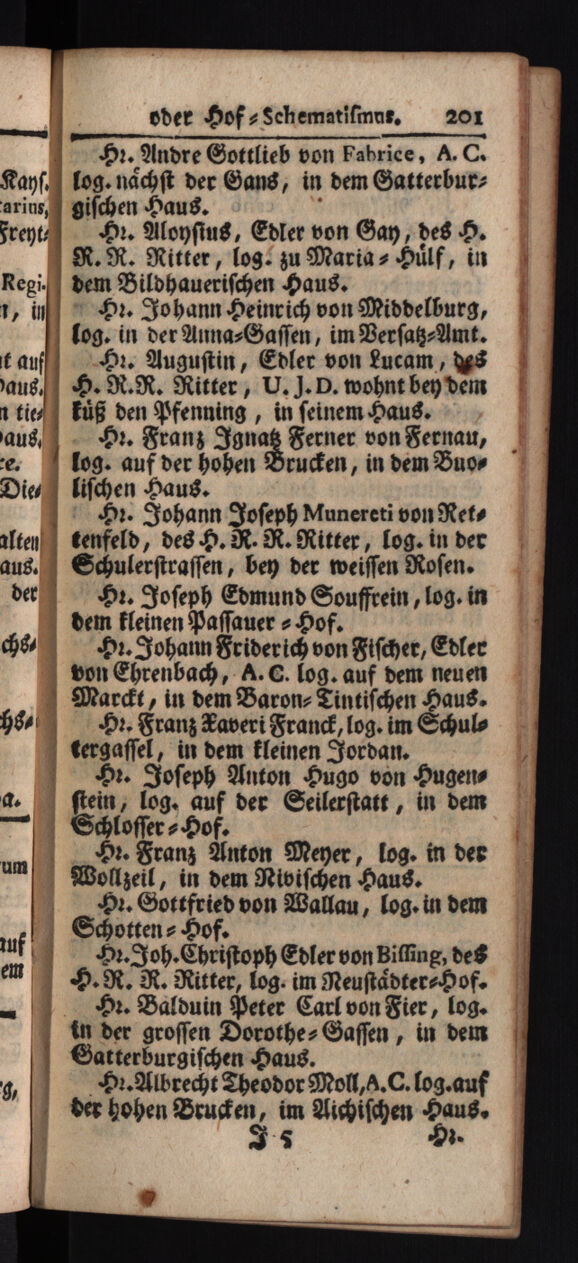 oder Hof-Schematismus. 201
Hr. Andre Gottlieb von Fabrice, A. C.
log. nächst der Gans, in dem Gatterbur-
gischen Haus.
Hr. Aloysius, Edler von Gay, des H.
R. R. Ritter, log. zu Maria-Hülf, in
dem Bildhauerischen Haus.
Hr. Johann Heinrich von Middelburg,
log. in der Anna-Gassen, im Versatz-Amt.
Hr. Augustin, Edler von Lucam, des
H. R.R. Ritter, U. J. D. wohnt bey dem
küß den Pfenning, in seinem Haus.
Hr. Franz Ignatz Ferner von Fernau,
log. auf der hohen Brucken, in dem Buo-
lischen Haus.
Hr. Johann Joseph Munereti von Ret-
tenfeld, des H. R. R. Ritter, log. in der
Schulerstrassen, bey der weissen Rosen.
Hr. Joseph Edmund Souffrein, log. in
dem kleinen Passauer-Hof.
Hr. Johann Friderich von Fischer, Edler
von Ehrenbach, A. C. log. auf dem neuen
Marckt, in dem Baron-Tintischen Haus.
Hr. Franz Xaveri Franck, log. im Schul-
tergassel, in dem kleinen Jordan.
Hr. Joseph Anton Hugo von Hugen-
stein, log. auf der Seilerstatt, in dem
Schlosser-Hof.
Hr. Franz Anton Meyer, log. in der
Wollzeil, in dem Nivischen Haus.
Hr. Gottfried von Wallau, log. in dem
Schotten-Hof.
Hr. Joh. Christoph Edler von Bissing, des
H. R. R. Ritter, log. im Neustädter-Hof.
Hr. Balduin Peter Carl von Fier, log.
in der grossen Dorothe-Gassen, in dem
Gatterburgischen Haus.
Hr. Albrecht Theodor Moll, A.C. log. auf
der hohen Brucken, im Aichischen Haus.
J 5 Hr.